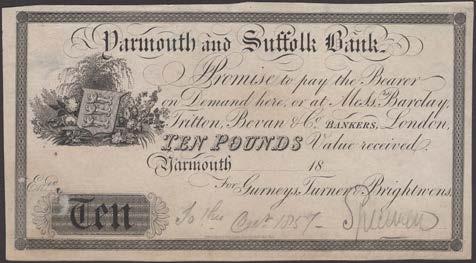 Yarmouth and Suffolk Bank.
Promise to pay the Bearer
on Demand here, or at Mess.rs Barclay,
Tritton, Bevan & Co. BANKERS, London,
TEN POUNDS Value received.
Yarmouth 18
For Gurneys, Turner & Brightwens,
Ent.d
Ten
To this 1857